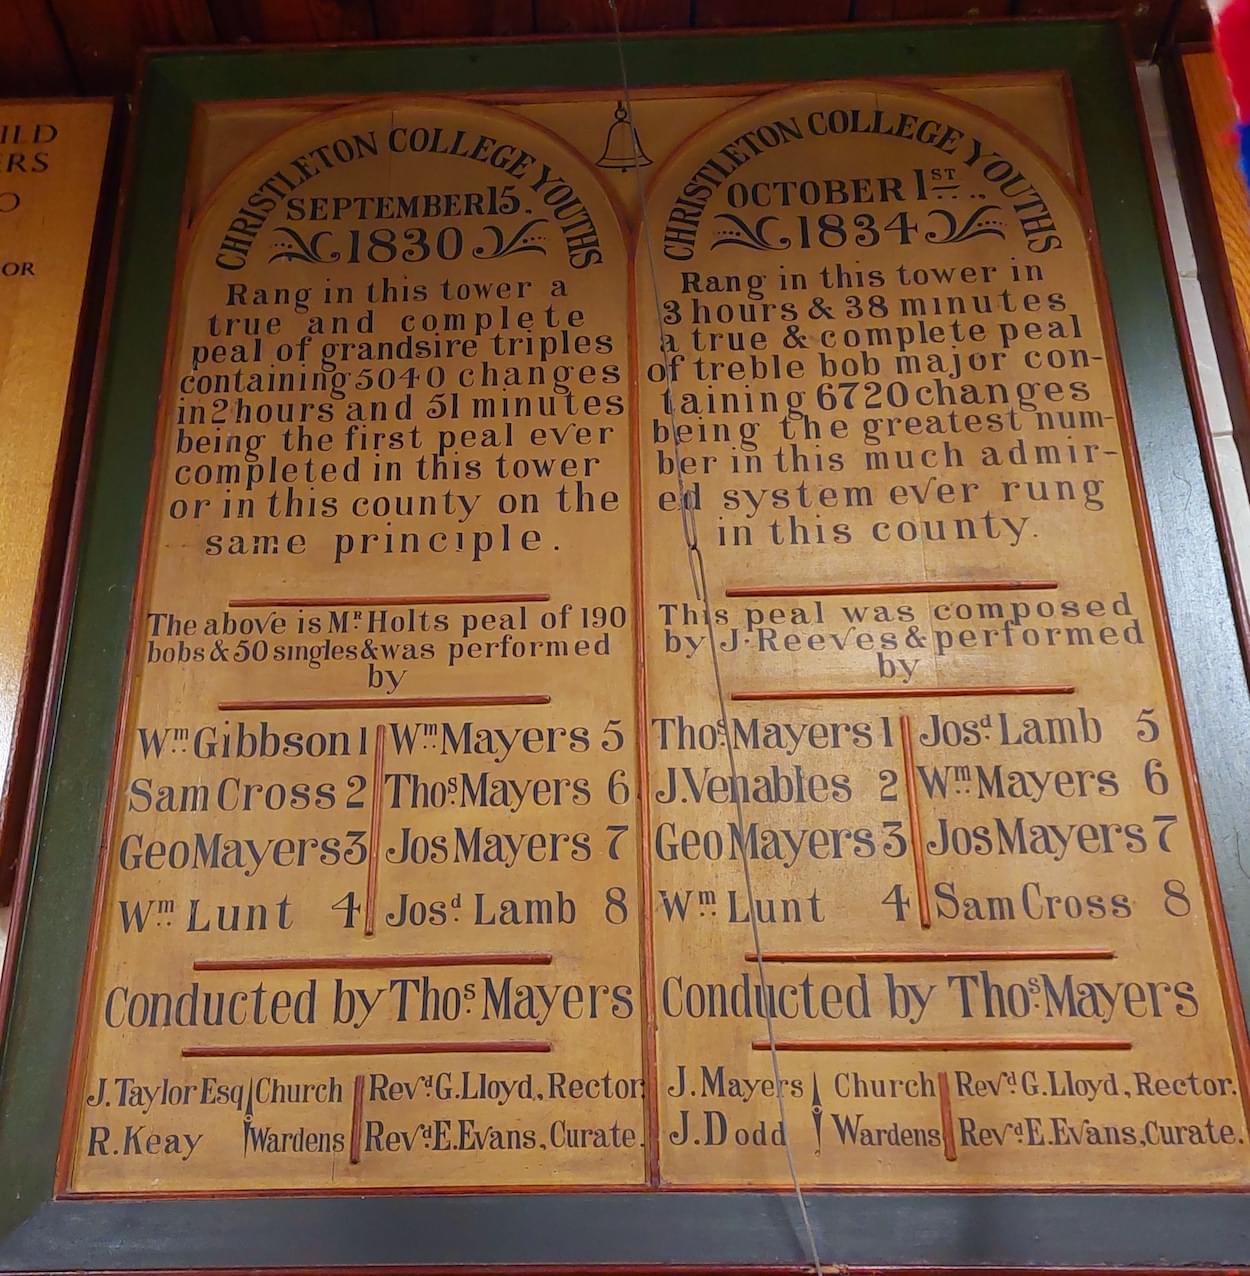 ILD
ERS
O
OR
CHRISTLETON COLLEGE YOUTHS
SEPTEMBER 15.
1830
Rang in this tower a
true and complete
peal of grandsire triples
containing 5040 changes
in 2 hours and 51 minutes
being the first peal ever
completed in this tower
or in this county on the
same principle.
The above is Mr. Holts peal of 190
bobs & 50 singles & was performed
by
Wm. Gibbson 1 Wm. Mayers 5
Sam Cross 2 Thos. Mayers 6
Geo Mayers 3 Jos Mayers 7
Wm. Lunt 4 Josd. Lamb 8
Conducted by Thos. Mayers
J. Taylor Esq Church Revd. G. Lloyd, Rector.
R. Keay Wardens Revd. E. Evans, Curate.
CHRISTLETON COLLEGE YOUTHS
OCTOBER 1ST
1834
Rang in this tower in
3 hours & 38 minutes
a true & complete peal
of treble bob major con-
taining 6720 changes
being the greatest num-
ber in this much admir-
ed system ever rung
in this county.
This peal was composed
by J. Reeves & performed
by
Thos. Mayers 1 Josd. Lamb 5
J. Venables 2 Wm. Mayers 6
Geo Mayers 3 Jos Mayers 7
Wm. Lunt 4 Sam Cross 8
Conducted by Thos. Mayers
J. Mayers Church Revd. G. Lloyd, Rector.
J. Dodd Wardens Revd. E. Evans, Curate.